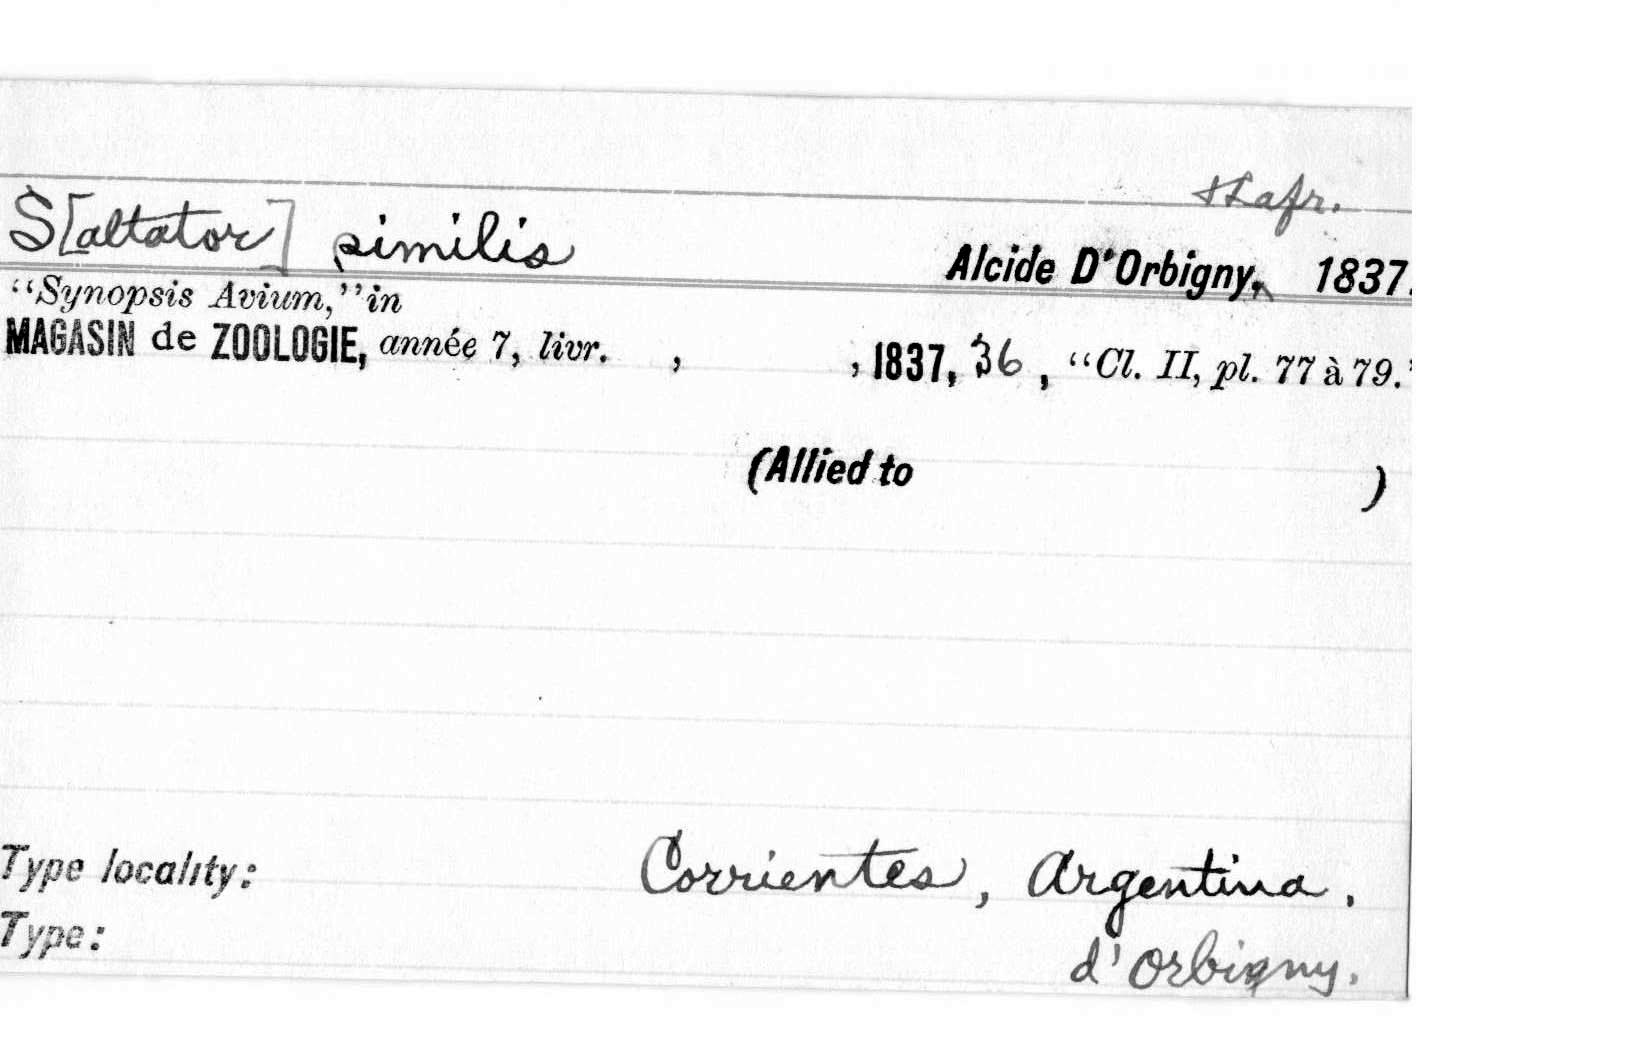 & Lafr.
S[altator] similis Alcide D'Orbigny, 1837.
"Synopsis Avium," in
MAGASIN de ZOOLOGIE, année 7, livr. , , 1837, 36, "Cl. II, pl. 77 à 79."
(Allied to )
Type locality: Corrientes, Argentina.
Type: d'Orbigny.